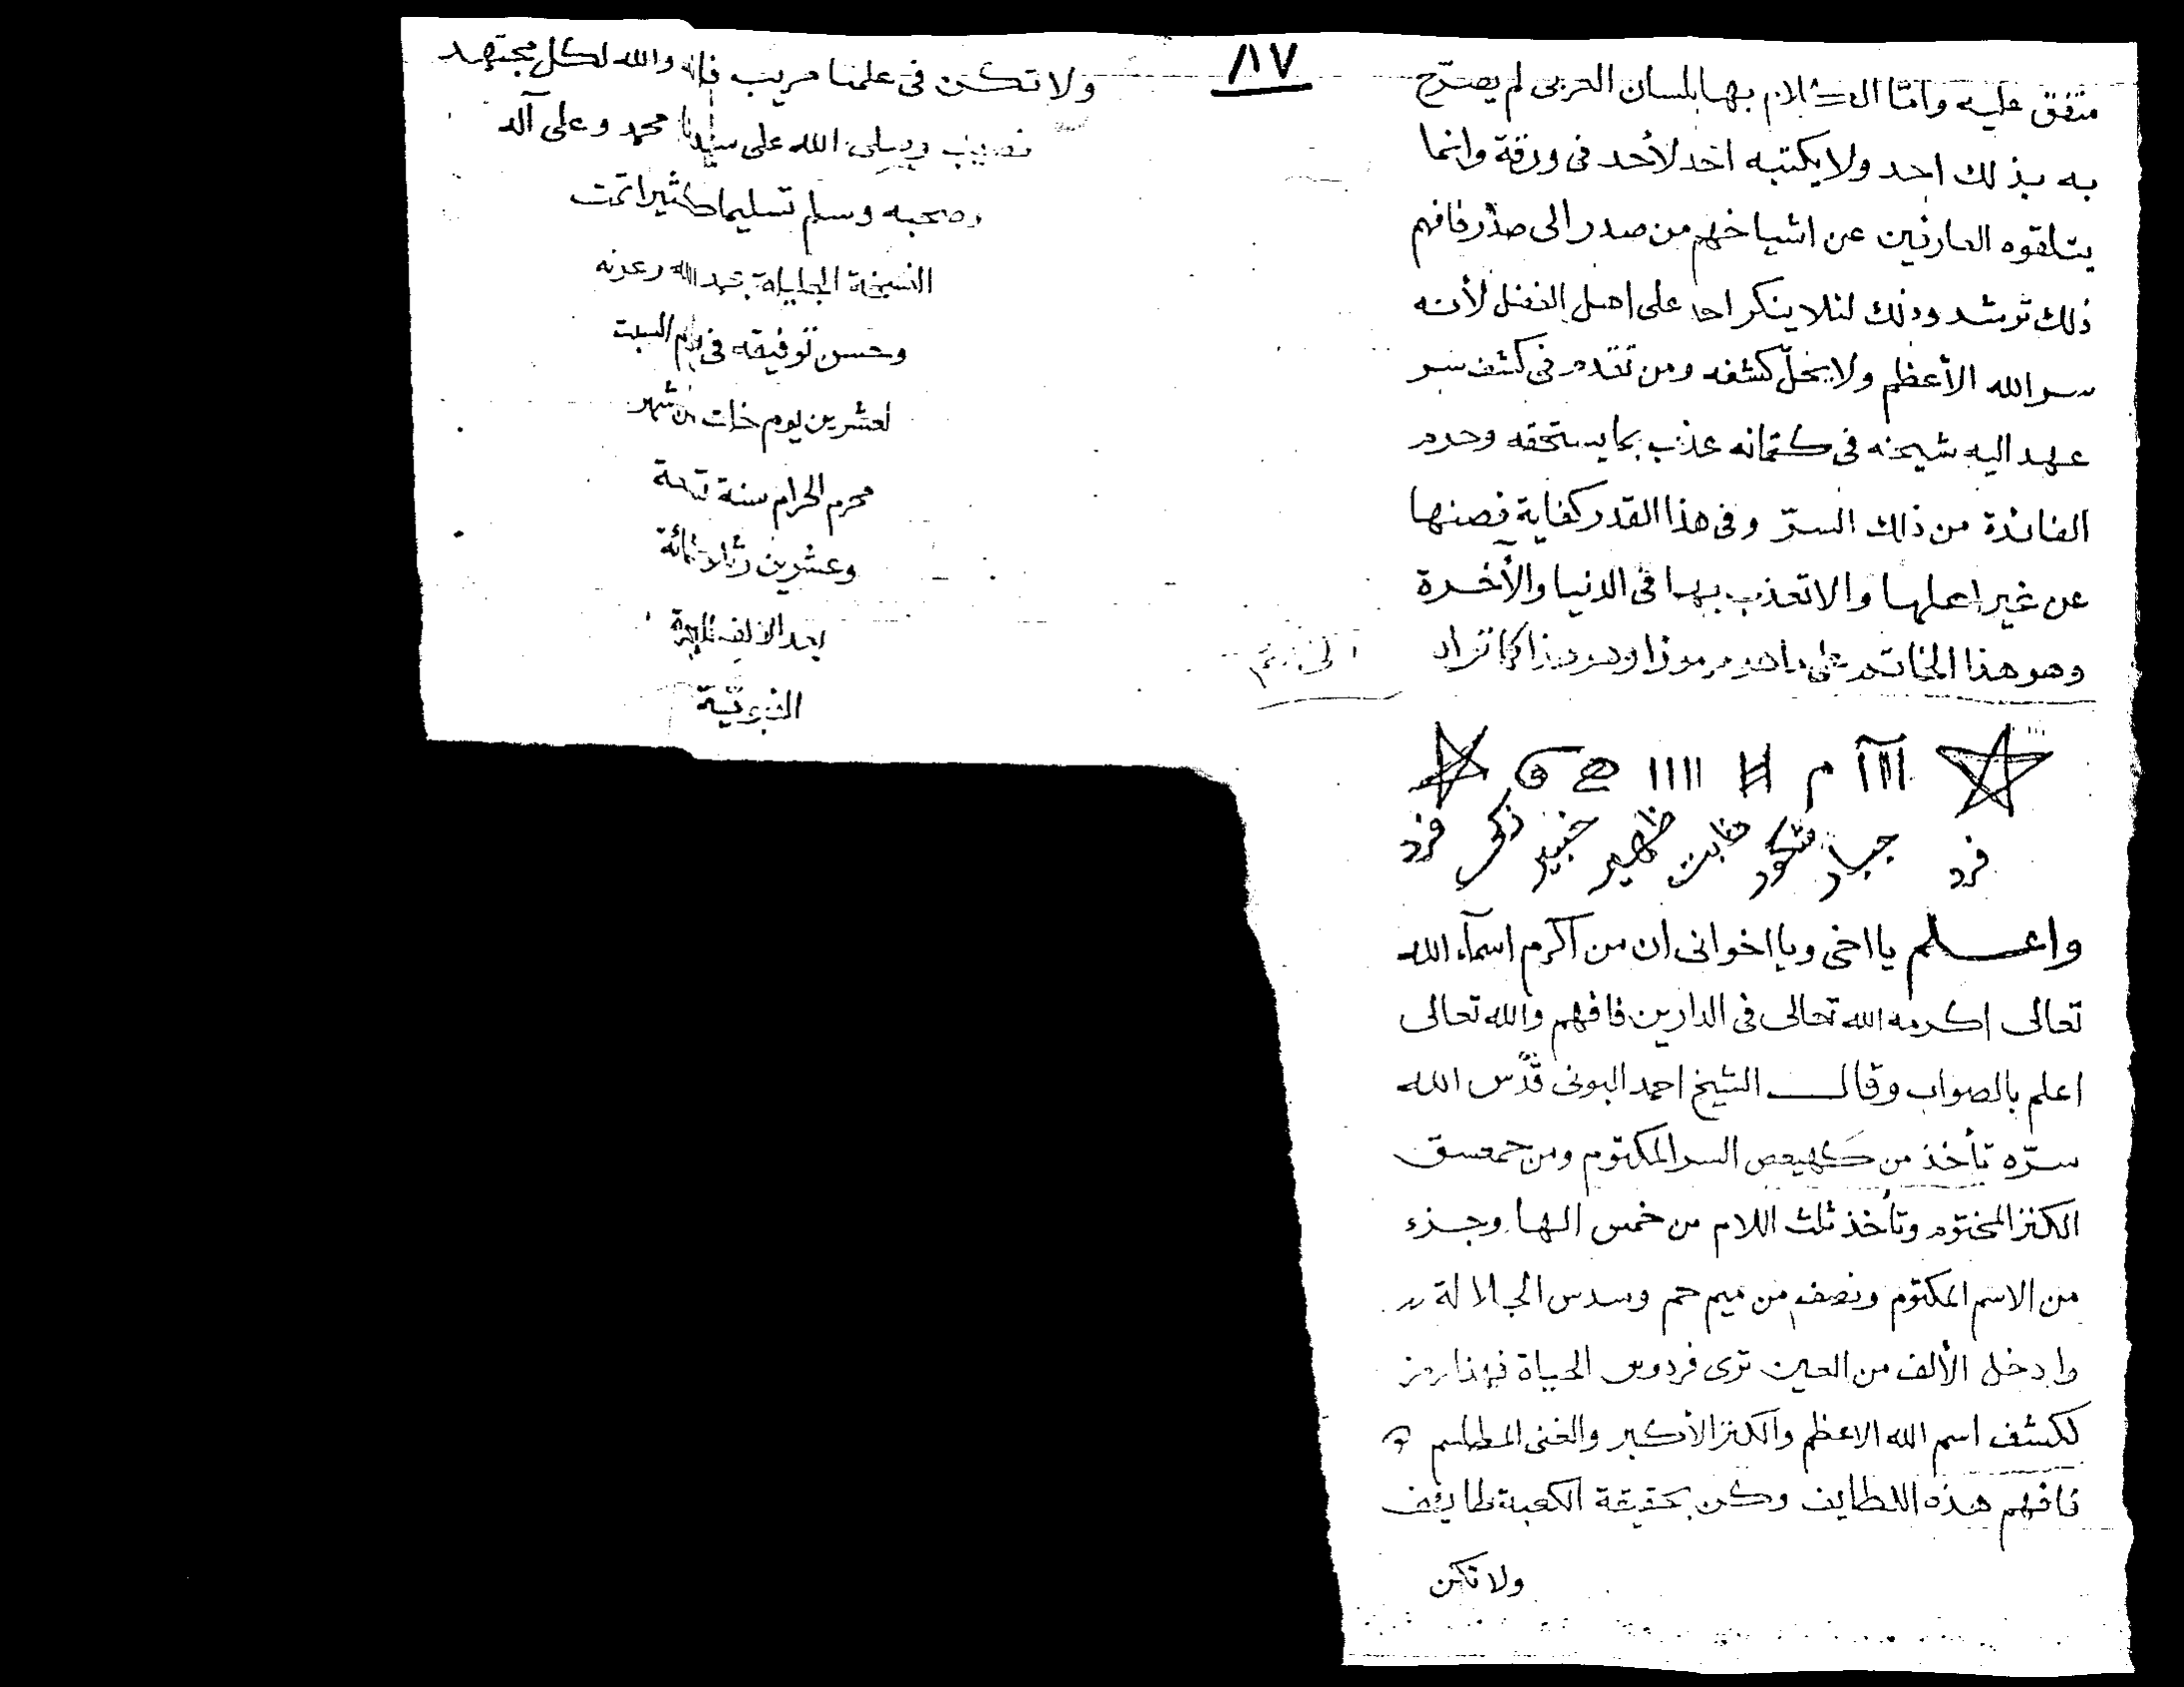 ١٧
متفق عليه واما الكلام بها بلسان العربى لم يصرّح
به بذلك احد ولا يكتبه احد لأحد فى ورقة وانما
يتلقوه العارفين عن اشياخهم من صدر الى صدر فافهم
ذلك ترشد وذلك لئلا ينكر احد على اهل الفضل لأنه
سر الله الأعظم ولا يحلّ كشفه ومن تقدم فى كشف سر
عهد اليه شيخه فى كتمانه عذب بما يستحقه وحرم
الفائدة من ذلك السرّ وفى هذا القدر كفاية فصنها
عن غير اهلها والا تعذب بها فى الدنيا والأخرة
وهو هذا الخاتم على ما هو مرموزا وهو هذا كما تراه
فرد جبار شكور ثابت ظهير خبير زكى فرد
واعلم يا اخى ويا اخوانى ان من اكرم اسمآء الله
تعالى اكرمه الله تعالى فى الدارين فافهم والله تعالى
اعلم بالصواب وقال الشيخ احمد البونى قدّس الله
سرّه تأخذ من كهيعص السر المكتوم ومن حمعسق
الكنز المختوم وتأخذ ثلث اللام من خمس الها وجزء
من الاسم المكتوم ونصف من ميم حم وسدس الجلالة
وادخل الألف من العين ترى فردوس الحياة فهذا رمز
لكشف اسم الله الاعظم والكنز الأكبر والغنى المطلسم
فافهم هذه اللطايف وكن بحقيقة الكعبة طايف
ولا تكن
ولا تكن فى علمنا مريب فانه والله لكل مجتهد
نصيب وصلى الله على سيدنا محمد وعلى آله
وصحبه وسلم تسليما كثيرا تمت
النسخة الجليلة بحمد الله وعونه
وحسن توفيقه فى يوم السبت
لعشرين يوم خلت من شهر
محرم الحرام سنة
وعشرين وثلاثمائة
بعد الالف للهجرة
النبويّة